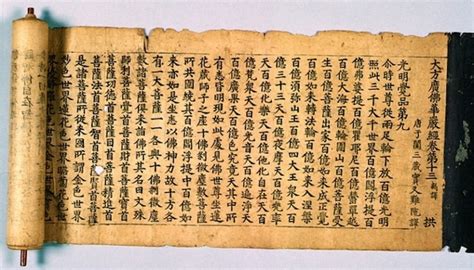 大方廣佛華嚴經卷第十三 新譯 拱
唐于闐三藏實叉難陀譯
光明覺品第九
尒時世尊從兩足輪下放百億光明
照此三千大千世界百億閻浮提百
億弗婆提百億瞿耶尼百億欝單越
百億大海百億輪圍山百億菩薩受
生百億菩薩出家百億如來成正覺
百億如來轉法輪百億如來入涅槃
百億須弥山王百億四天王衆天百
億三十三天百億夜摩天百億兜率
天百億化樂天百億他化自在天百
億梵衆天百億光音天百億遍淨天
百億廣果天百億色究竟天其中所
有悉皆明現如此處見佛世尊坐蓮
花藏師子之座十佛刹微塵數菩薩
所共圍繞其百億閻浮提中百億如
來亦如是坐悉以佛神力故十方各
有一大菩薩一一各與十佛刹微塵
數諸菩薩俱來詣佛所其名曰文殊
師利菩薩覺首菩薩財首菩薩寶首
菩薩功德首菩薩目首菩薩精進首
菩薩法首菩薩智首菩薩賢首菩薩
是諸菩薩所從來國所謂金色世界
妙色世界蓮花色世界